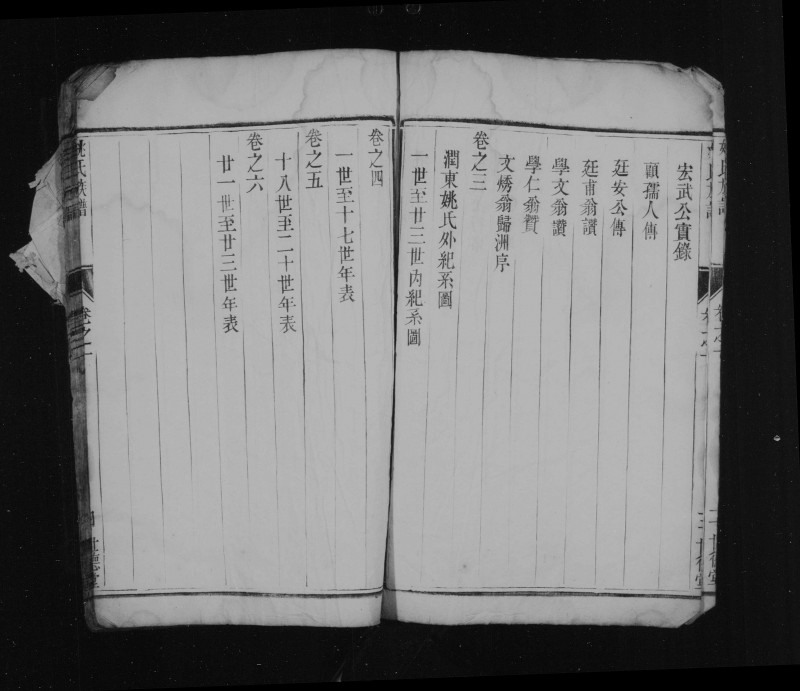 宏武公實錄
顧孺人傳
廷安公傳
廷甫翁讚
學文翁讚
學仁翁贊
文煥翁歸洲序
卷之三
潤東姚氏外紀系圖
一世至廿三世內紀系圖
卷之四
一世至十七世年表
卷之五
十八世至二十世年表
卷之六
廿一世至廿三世年表
姚氏族譜
卷之一
四
世德堂